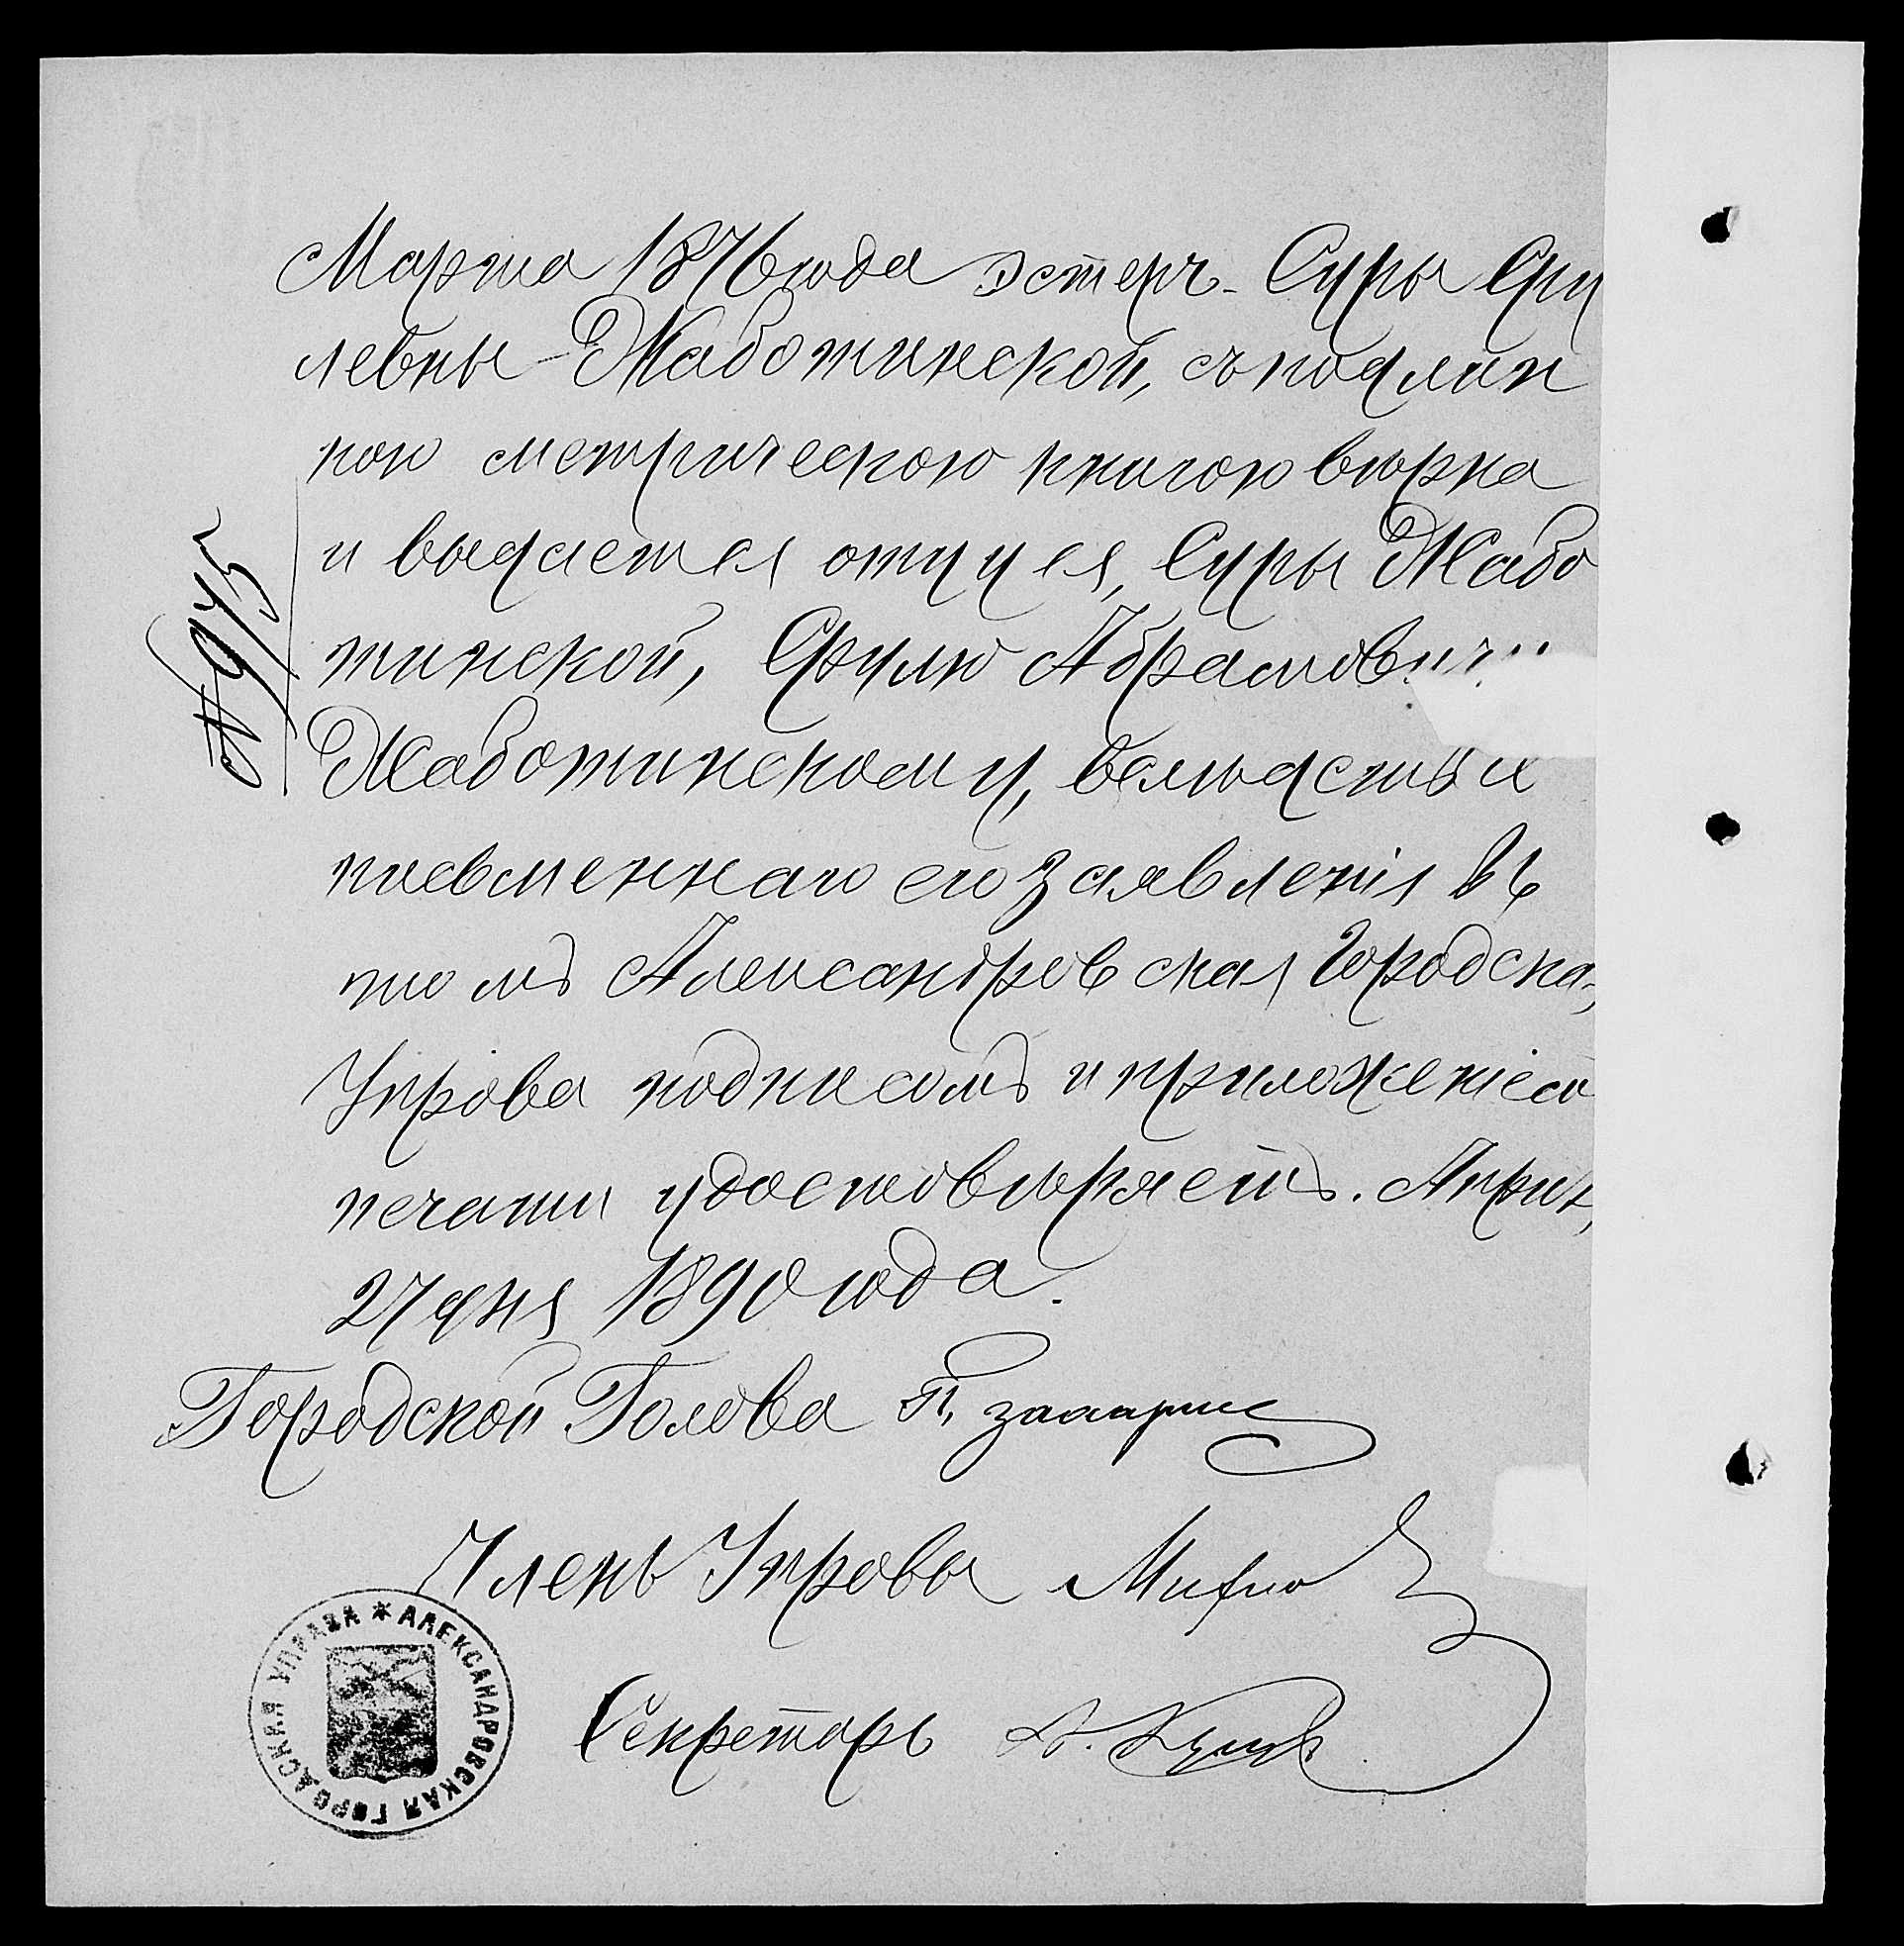 Марта 1876 года Эстеръ-Суры Сру
левны Жаботинской, съ подлин
ною метрическою книгою вѣрна
и выдается отцу ея, Суры Жабо
тинской, Срулю Абрамовичу
Жаботинскому, вслѣдствіе
письменнаго его заявленія въ
томъ Александровская Городская
Управа подписомъ и приложеніем
печати удостовѣряетъ. Апрѣл
27 дня 1890 года.
№ 975
Городской Голова
Членъ Управы
Секретарь
АЛЕКСАНДРОВСКАЯ ГОРОДСКАЯ УПРАВА *